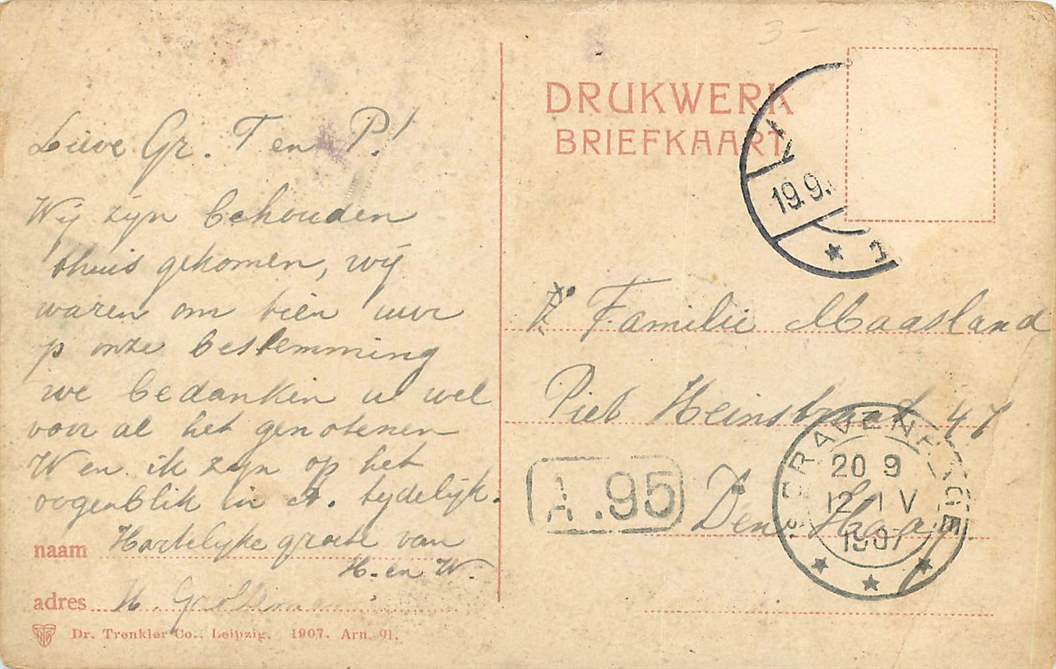 Lieve Gr. T en P.!
Wij zijn behouden
thuis gekomen, wij
waren om tien uur
p onze bestemming
we bedanken u wel
voor al het genotenen
W en ik zijn op het
oogenblik in A. tydelijk.
naam Hartelijke groete van
H. en W.
adres H.
Dr. Trenkler Co., Leipzig. 1907. Arn. 91.
3-
DRUKWERK
BRIEFKAART
19.9.
Familie Maasland
Piet Heinstraat 47
A.95
Den Haag
'S GRAVENHAGE
20 9
12-1 V
1907